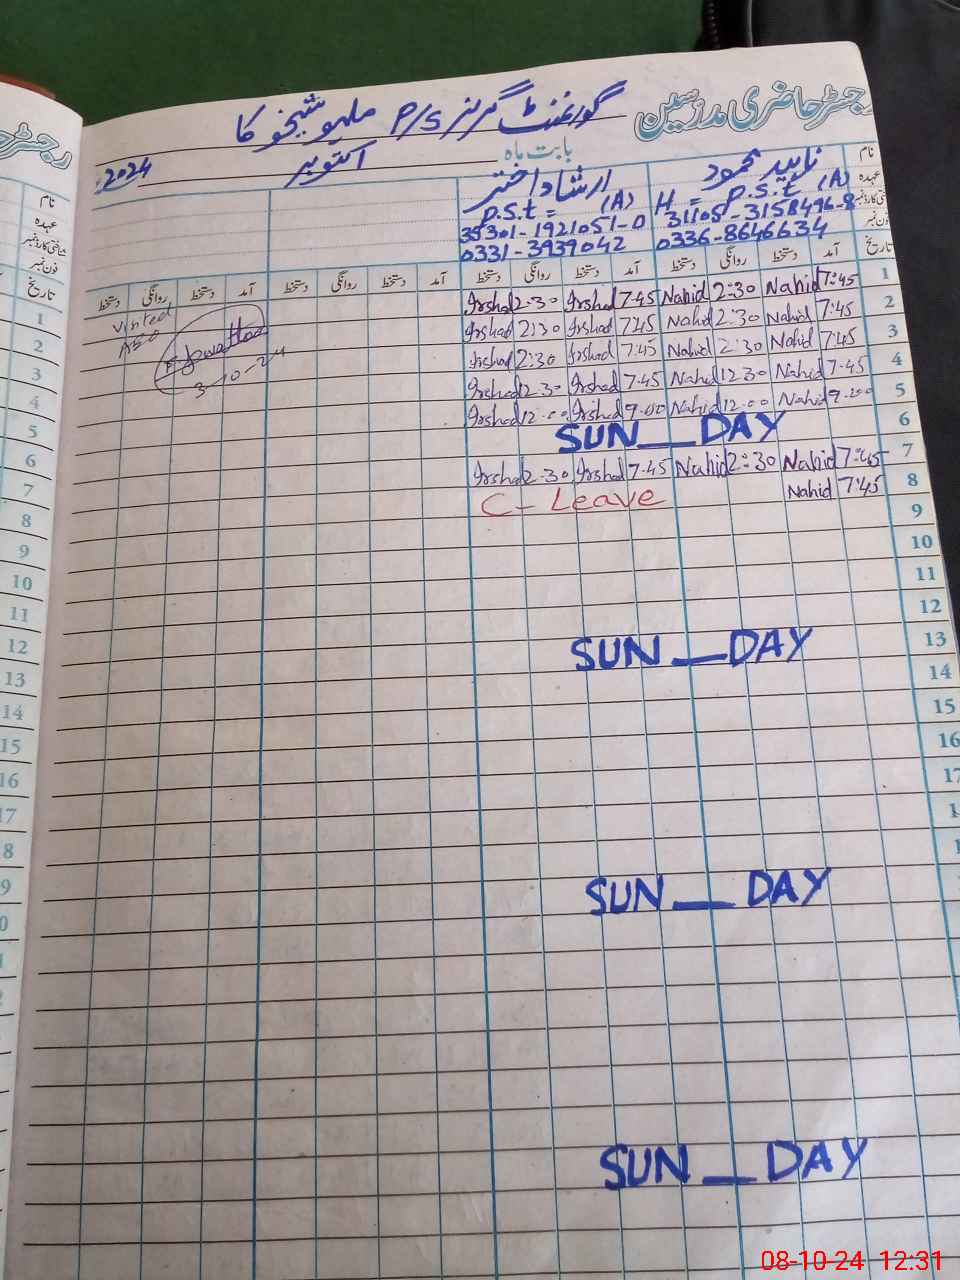 رجسٹر حاضری مدرسین گورنمنٹ گرلز P/S ملہو شیخو کا
بابت ماہ اکتوبر 2024
نام ناہید محمود ارشاد اختر
عہدہ H = P.S.t (A) P.S.t = (A)
31105-3158496-8 35301-1921051-0
فون نمبر 0336-8646634 0331-3939042
تاریخ آمد دستخط روانگی دستخط آمد دستخط روانگی دستخط آمد دستخط روانگی دستخط آمد دستخط روانگی دستخط
1 7:45 Nahid 2:30 Nahid 7.45 Irshad 2.30 Irshad
2 7:45 Nahid 2:30 Nahid 7:45 Irshad 2:30 Irshad visited
3 7:45 Nahid 2:30 Nahid 7:45 Irshad 2:30 Irshad
4 7.45 Nahid 2.30 Nahid 7.45 Irshad 2.30 Irshad 3-10-24
5 9.00 Nahid 12.00 Nahid 9.00 Irshad 12.00 Irshad
6 SUN__DAY
7 7:45 Nahid 2:30 Nahid 7.45 Irshad 2.30 Irshad
8 7:45 Nahid C- Leave
9
10
11
12
13 SUN__DAY
14
15
16
17
SUN__DAY
SUN__DAY
رجسٹر
نام
عہدہ
شناختی کارڈ نمبر
فون نمبر
تاریخ
1
2
3
4
5
6
7
8
9
10
11
12
13
14
15
16
17
8
9
0
08-10-24 12:31